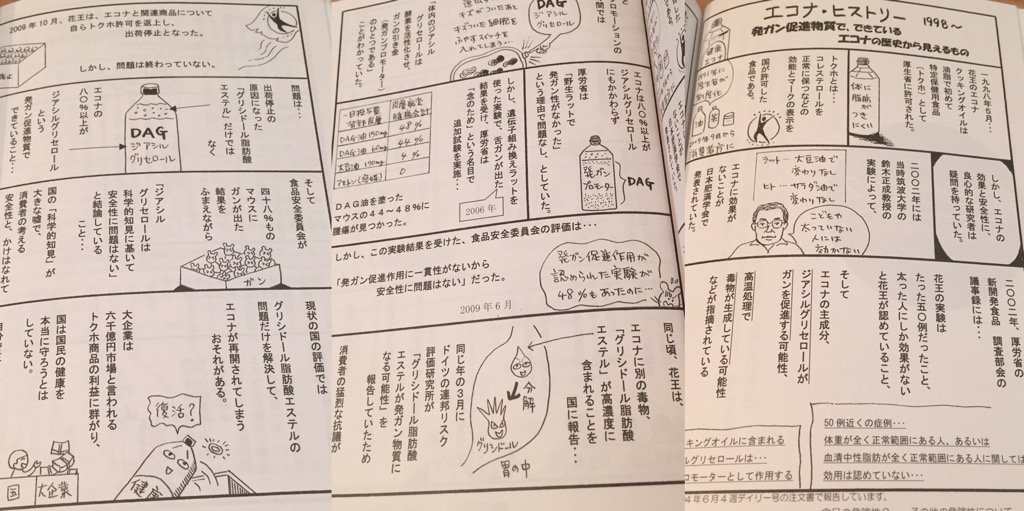 エコナ・ヒストリー
1998～
発ガン促進物質で、できている
エコナの歴史から見えるもの
一九九八年五月
花王の
クッキングオイルは
油脂で初めて
特定保健用食品
として
厚生省に許可された。
体に
脂肪が
つき
にくい
トクホとは…
コレステロールを
正常に保つなどの
効能とマークの表示を
国が許可した
食品である。
しかし、エコナの
効果と安全性に、
良心的な研究者は
疑問を持っていた。
二〇〇二年には
当時筑波大学の
鈴木正成教授の
実験によって、
ラット…大豆油で
変わりなし
ヒト…サラダ油で
変わりなし
こどもや
太っていない
人には
効かない
エコナに効果が
ないことが
日本肥満学会で
発表されていた。
二〇〇二年、厚労省の
新開発食品 調査部会の
議事録には…
花王の実験は
たった五〇例だったこと、
太った人にしか効果がない
と花王が認めていること、
そして
エコナの主成分、
ジアシルグリセロールが
ガンを促進する可能性、
高温処理で
毒物が生成している可能性
などが指摘されている
50例近くの症例…
体重が全く正常範囲にある人、あるいは
血清中性脂肪が全く正常範囲にある人に関しては
効用は認めていない…
キングオイルに含まれる
ルグリセロールは…
ロモーターとして作用する
4年6月4週デイリー号の注文書で報告しています。
プロモーションの
間では
キズがついたあと
キズついた細胞を
ふやすスイッチを
入れてしまう…
DAG
ジアシル
グリセロール
「体内のジアシル
グリセロールは
酵素を活性化させ、
ガンの引き金
(発ガンプロモーター)
のひとつである」
ことがわかっていた。
エコナは八〇％以上が
ジアシルグリセロール
にもかかわらず
厚労省は
「野生ラットで
発ガン性がなかった」
という理由で問題なし、としていた。
発ガン
プロモーター
DAG
しかし、遺伝子組み換えラットを
使った実験で、舌ガンが出た
結果を受け、厚労省は
「念のため」という名目で
追加試験を実施…
2006年
DAG油 150mg
48%
DAG油 60mg
44%
大豆油 150mg
4%
アセトン(溶媒)
0
DAG油を塗った
マウスの44～48％に
腫瘍が見つかった。
しかし、この実験結果を受けた、食品安全委員会の評価は…
「発ガン促進作用に一貫性がないから
安全性に問題はない」だった。
2009年6月
発ガン促進作用が
認められた実験が
48％もあったのに…
同じ頃、花王は、
エコナに別の毒物、
「グリシドール脂肪酸
エステル」が高濃度に
含まれることを
国に報告…
分解
グリシドール
胃の中
同じ年の3月に
ドイツの連邦リスク
評価研究所が
「グリシドール脂肪酸
エステルが発ガン物質に
なる可能性」を
報告していたため
消費者の猛烈な抗議が
2009年10月、花王は、エコナと関連商品について
自らトクホ許可を返上し、
出荷停止となった。
しかし、問題は終わっていない。
問題は…
出荷停止の
原因になった
「グリシドール脂肪酸
エステル」だけでは
なく
DAG
ジアシル
グリセロール
エコナの
八〇％以上が
ジアシルグリセロール
という
発ガン促進物質で
できていること…
そして
食品安全委員会が
四十八％もの
マウスに
ガンが出た
実験を
ふまえながら
ガン
「ジアシル
グリセロールは
科学的知見に基いて
安全性に問題はない」
と結論している
こと…
国の「科学的知見」が
大きな嘘で、
消費者の考える
安全性と、かけはなれて
現状の国の評価では
グリシドール脂肪酸エステルの
問題だけを解決して、
エコナが再開されてしまう
おそれがある。
復活？
健康
大企業は
六千億円市場と言われる
トクホ商品の利益に群がり、
国は国民の健康を
本当に守ろうとは
していない。
国
大企業